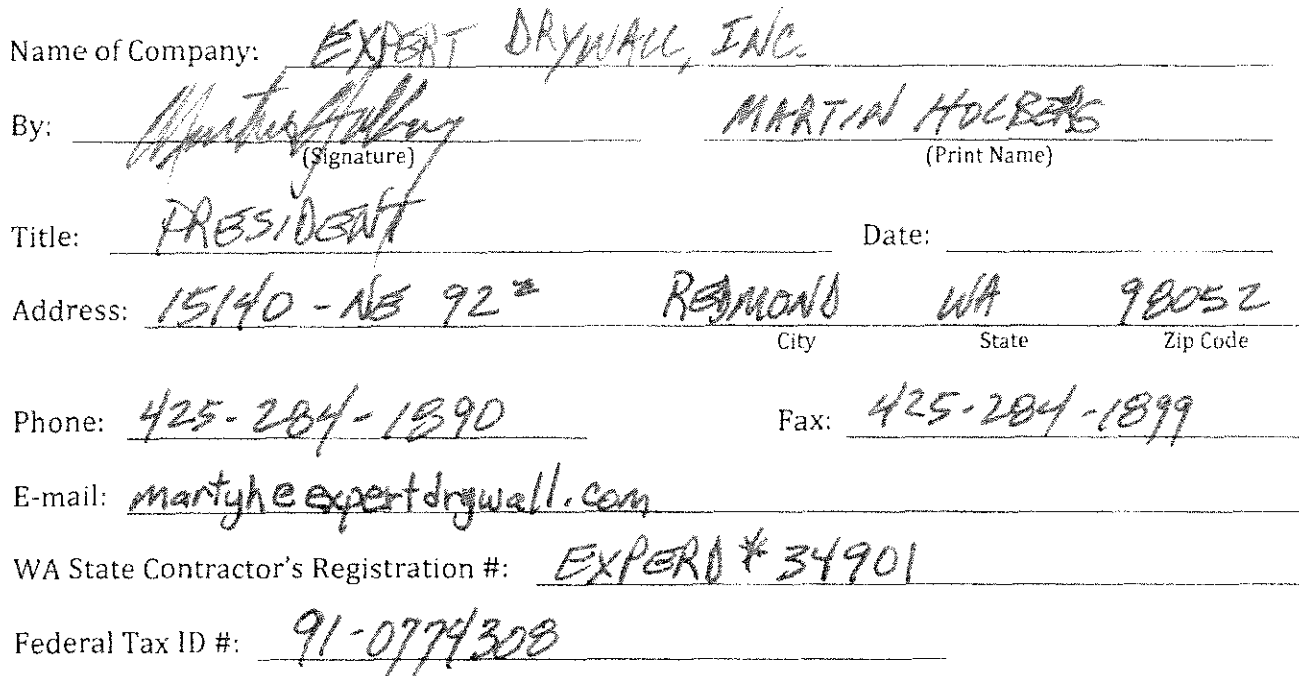 Name of Company: EXPERT DRYWALL, INC.
By: MARTIN HOLBERG
(Signature) (Print Name)
Title: PRESIDENT Date:
Address: 15140 - NE 92 REDMOND WA 98052
City State Zip Code
Phone: 425-284-1890 Fax: 425-284-1899
E-mail: martyh@expertdrywall.com
WA State Contractor's Registration #: EXPERD*34901
Federal Tax ID #: 91-0774308